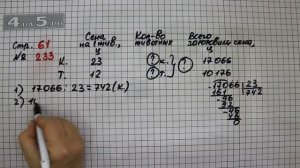 4-на-5.ru
Стр. 61
№ 233
Сена на 1 гол., ц
Кол-во животных
Всего заготовили сена, ц
К. 23 ? 17066
Т. 12 ? ? 10 176
1) 17066 : 23 = 742 (к.)
2) 10
17066 | 23
161 742
96
92
46
46
0